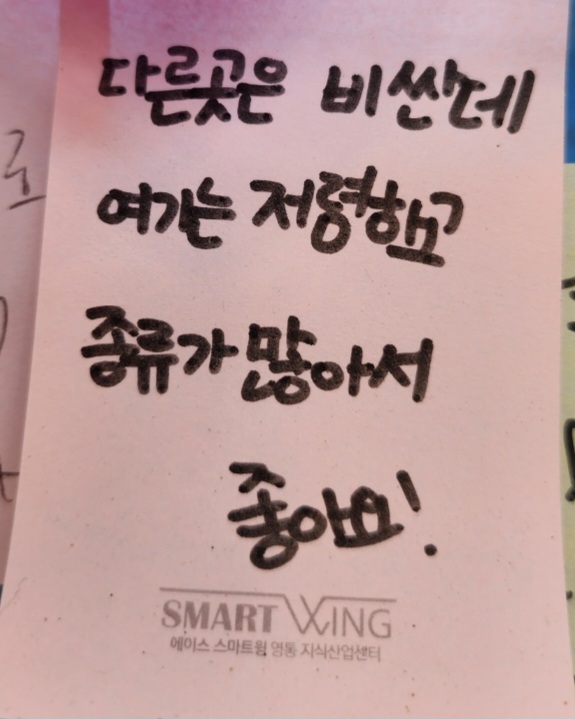 다른곳은 비싼데
여기는 저렁하고
종류가 많아서
좋아요!
SMART WING
에이스 스마트윙 영통 지식산업센터